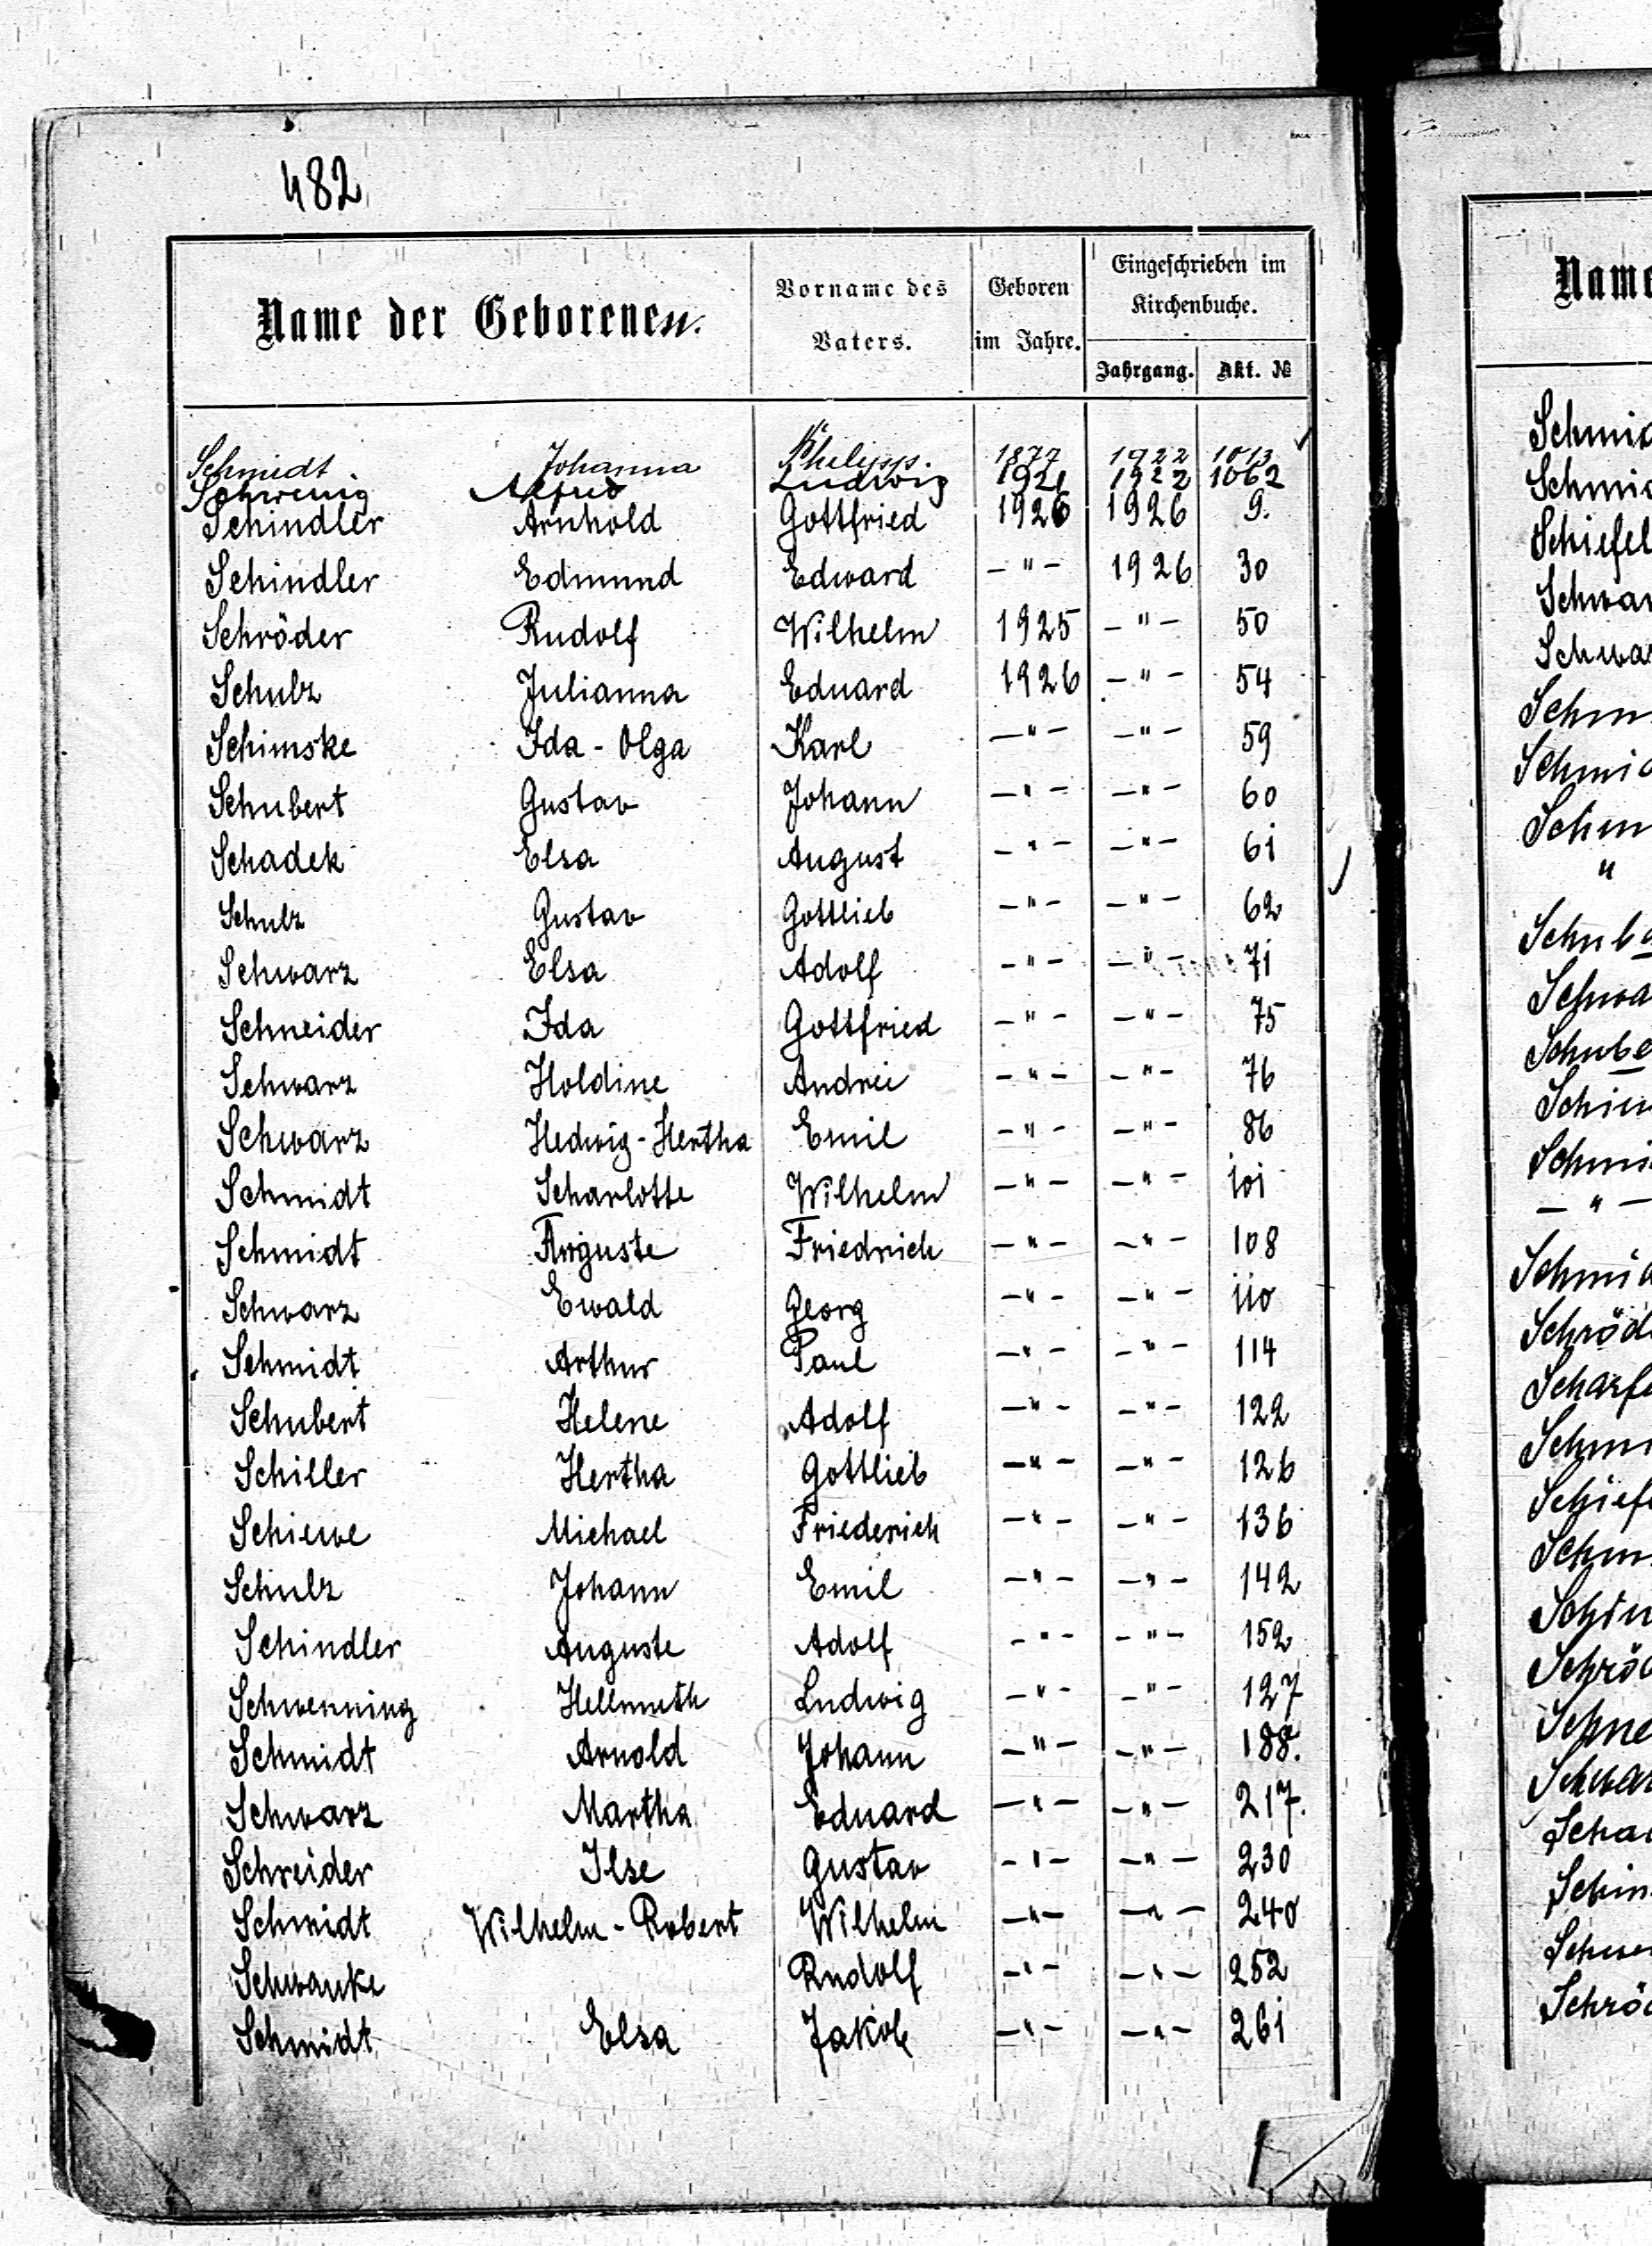 482
Name der Geborenen.
Vorname des Vaters.
Geboren im Jahre.
Eingeschrieben im Kirchenbuche.
Jahrgang. Akt. №
Schmidt Johanna Philipp. 1877 1922 1013
Schwenig Alfred Ludwig 1921 1922 1062
Schindler Arnhold Gottfried 1926 1926 9.
Schindler Edmund Edward -"- 1926 30
Schröder Rudolf Wilhelm 1925 -"- 50
Schulz Julianna Eduard 1926 -"- 54
Schimske Ida - Olga Karl -"- -"- 59
Schubert Gustav Johann -"- -"- 60
Schadek Elsa August -"- -"- 61
Schulz Gustav Gottlieb -"- -"- 62
Schwarz Elsa Adolf -"- -"- 71
Schneider Ida Gottfried -"- -"- 75
Schwarz Holdine Andrei -"- -"- 76
Schwarz Hedwig-Hertha Emil -"- -"- 86
Schmidt Scharlotte Wilhelm -"- -"- 101
Schmidt Auguste Friedrich -"- -"- 108
Schwarz Ewald Georg -"- -"- 110
Schmidt Arthur Paul -"- -"- 114
Schubert Helene Adolf -"- -"- 122
Schiller Hertha Gottlieb -"- -"- 126
Schiewe Michael Friederich -"- -"- 136
Schulz Johann Emil -"- -"- 142
Schindler Auguste Adolf -"- -"- 152
Schwenning Hellmuth Ludwig -"- -"- 127
Schmidt Arnold Johann -"- -"- 188.
Schwarz Martha Eduard -"- -"- 217.
Schreider Ilse Gustav -"- -"- 230
Schmidt Wilhelm - Robert Wilhelm -"- -"- 240
Schwanke Rudolf -"- -"- 252
Schmidt Elsa Jakob -"- -"- 261
Name